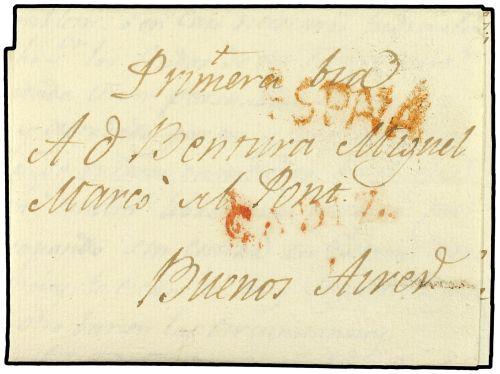 Primera via
ESPAÑA
A d Bentura Miguel
Marcò del Pont.
CADIZ.
Buenos Aires